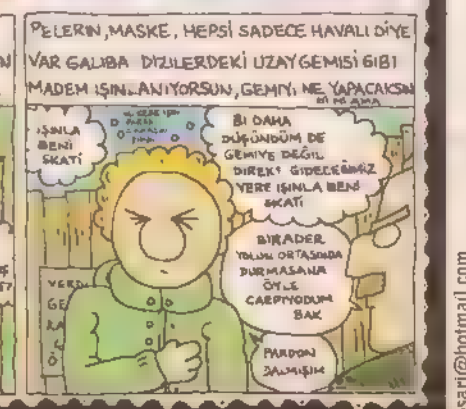 PELERİN, MASKE, HEPSİ SADECE HAVALI DİYE
VAR GALİBA DİZİLERDEKİ UZAY GEMİSİ GİBİ
MADEM IŞINLANIYORSUN, GEMİYİ NE YAPACAKSIN
IŞINLA
BENİ
SKATİ
Bİ DAHA
DÜŞÜNDÜM DE
GEMİYE DEĞİL
DİREKT GİDECEĞİMİZ
YERE IŞINLA BENİ
SKATİ
BİRADER
YOLUN ORTASINDA
DURMASANA
ÖYLE
ÇARPIYODUM
BAK
PARDON
DALMIŞIM
VERD
GE
sari@hotmail.com